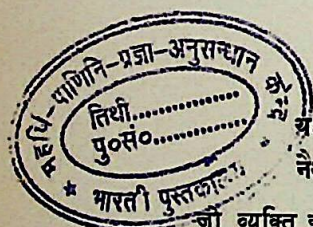 महर्षि-पाणिनि-प्रज्ञा-अनुसन्धान केन्द्र
तिथी..................
पु०सं०................
* भारती पुस्तकालय *
जो व्यक्ति